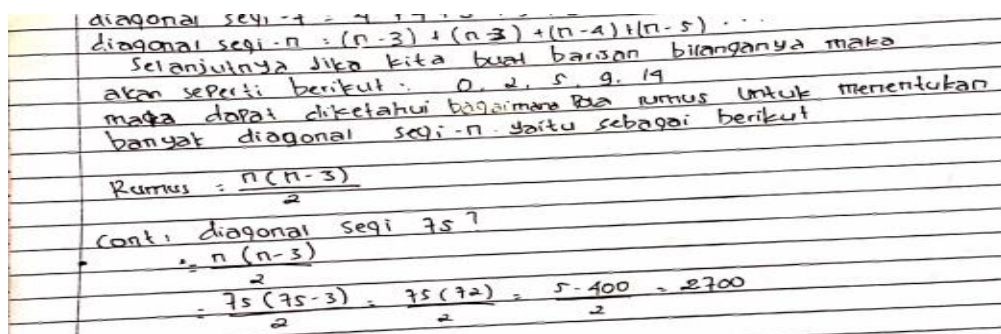 diagonal segi-7 = 4 + 4 +
diagonal segi-n = (n-3) + (n-3) + (n-4) + (n-5) ...
Selanjutnya Jika kita buat barisan bilanganya maka
akan seperti berikut : 0, 2, 5, 9, 14
maka dapat diketahui bagaimana Pola rumus untuk menentukan
banyak diagonal segi-n yaitu sebagai berikut
Rumus = n(n-3) / 2
Cont : diagonal segi 75 ?
= n (n-3) / 2
= 75 (75-3) / 2 = 75 (72) / 2 = 5-400 / 2 = 2700